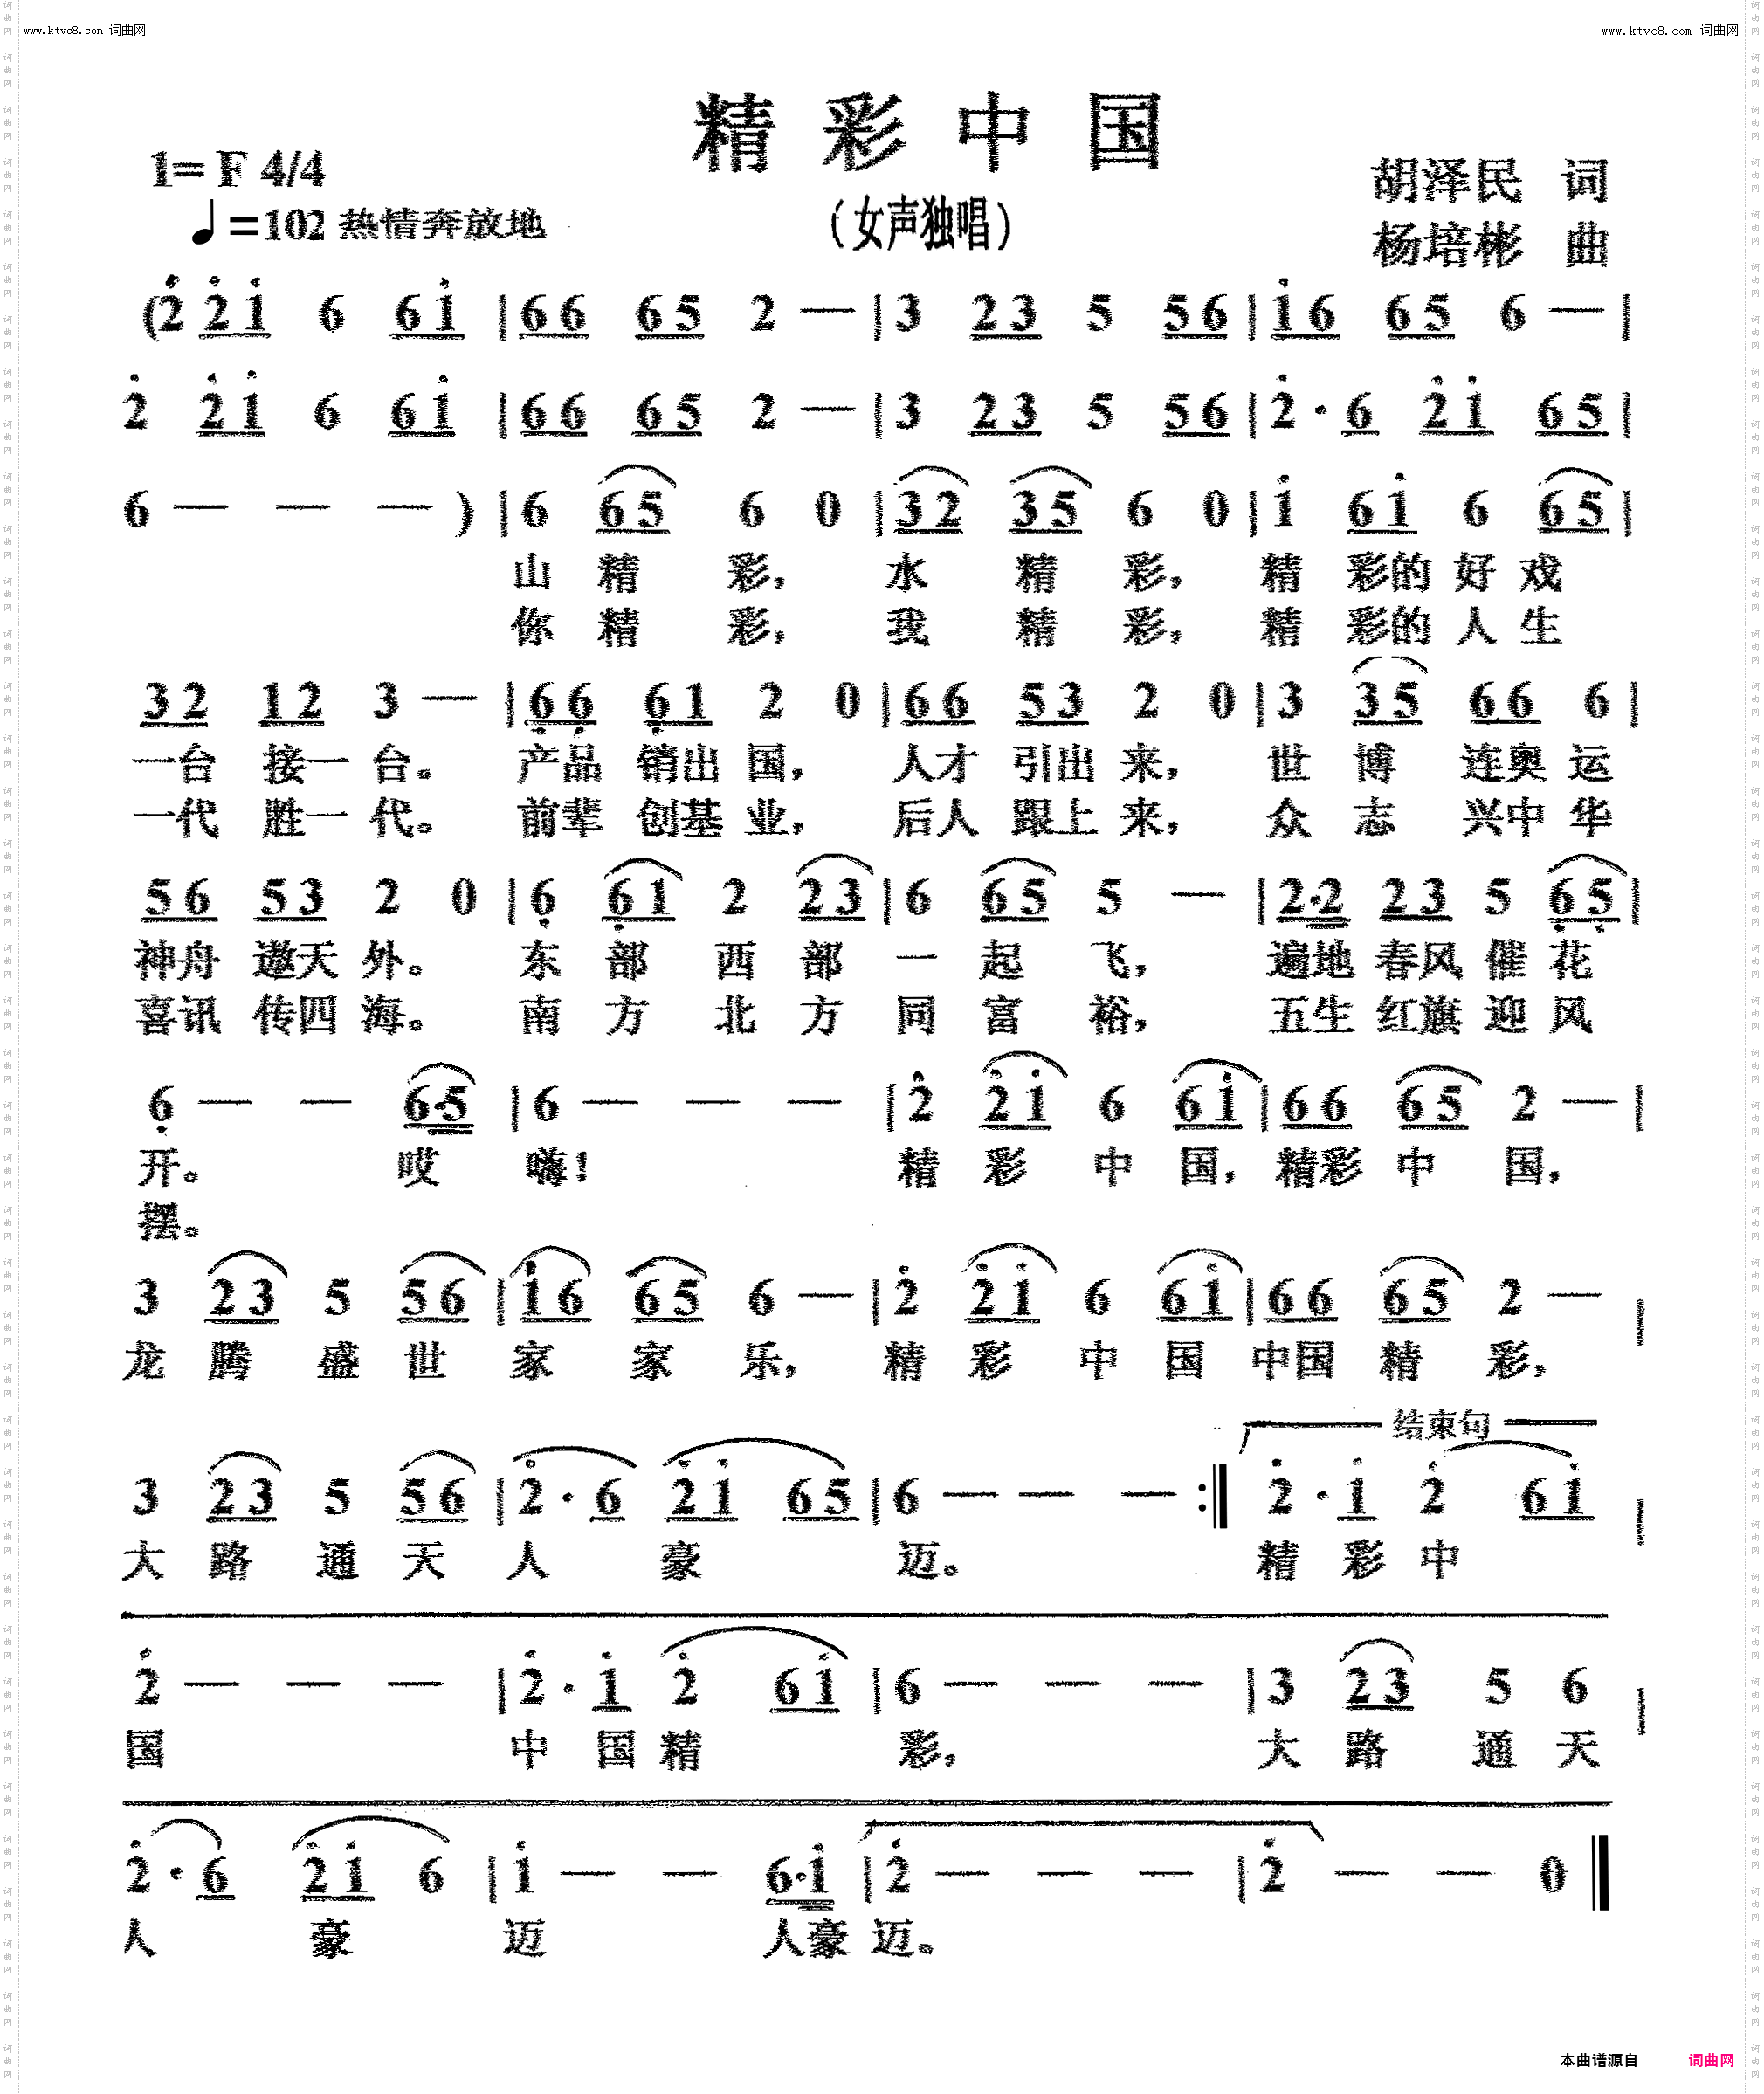 www.ktvc8.com 词曲网
www.ktvc8.com 词曲网
精彩中国
1= F 4/4
胡泽民 词
♩=102 热情奔放地
(女声独唱)
杨培彬 曲
(2̇ 2̇ 1̇ 6 6 1̇ | 6 6 6 5 2 — | 3 2 3 5 5 6 | 1̇ 6 6 5 6 — |
2̇ 2̇ 1̇ 6 6 1̇ | 6 6 6 5 2 — | 3 2 3 5 5 6 | 2̇ · 6 2̇ 1̇ 6 5 |
6 — — — ) | 6 6 5 6 0 | 3 2 3 5 6 0 | 1̇ 6 1̇ 6 6 5 |
山 精 彩, 水 精 彩, 精 彩的 好 戏
你 精 彩, 我 精 彩, 精 彩的 人 生
3 2 1 2 3 — | 6̣ 6̣ 6̣ 1 2 0 | 6 6 5 3 2 0 | 3 3 5 6 6 6 |
一台 接一 台。 产品 销出 国, 人才 引出 来, 世 博 连奥 运
一代 胜一 代。 前辈 创基 业, 后人 跟上 来, 众 志 兴中 华
5 6 5 3 2 0 | 6̣ 6̣ 1 2 2 3 | 6 6 5 5 — | 2·2 2 3 5 6̣ 5̣ |
神舟 遨天 外。 东 部 西 部 一 起 飞, 遍地 春风 催 花
喜讯 传四 海。 南 方 北 方 同 富 裕, 五生 红旗 迎 风
6̣ — — 6·5 | 6 — — — | 2̇ 2̇ 1̇ 6 6 1̇ | 6 6 6 5 2 — |
开。 哎 嗨! 精 彩 中 国, 精彩 中 国,
摆。
3 2 3 5 5 6 | 1̇ 6 6 5 6 — | 2̇ 2̇ 1̇ 6 6 1̇ | 6 6 6 5 2 — |
龙 腾 盛 世 家 家 乐, 精 彩 中 国 中国 精 彩,
结束句
3 2 3 5 5 6 | 2̇ · 6 2̇ 1̇ 6 5 | 6 — — — :‖ 2̇ · 1̇ 2̇ 6 1̇ |
大 路 通 天 人 豪 迈。 精 彩 中
2̇ — — — | 2̇ · 1̇ 2̇ 6 1̇ | 6 — — — | 3 2 3 5 6 |
国 中 国 精 彩, 大 路 通 天
2̇ · 6 2̇ 1̇ 6 | 1̇ — — 6·1̇ | 2̇ — — — | 2̇ — — 0 ‖
人 豪 迈 人豪 迈。
本曲谱源自 词曲网